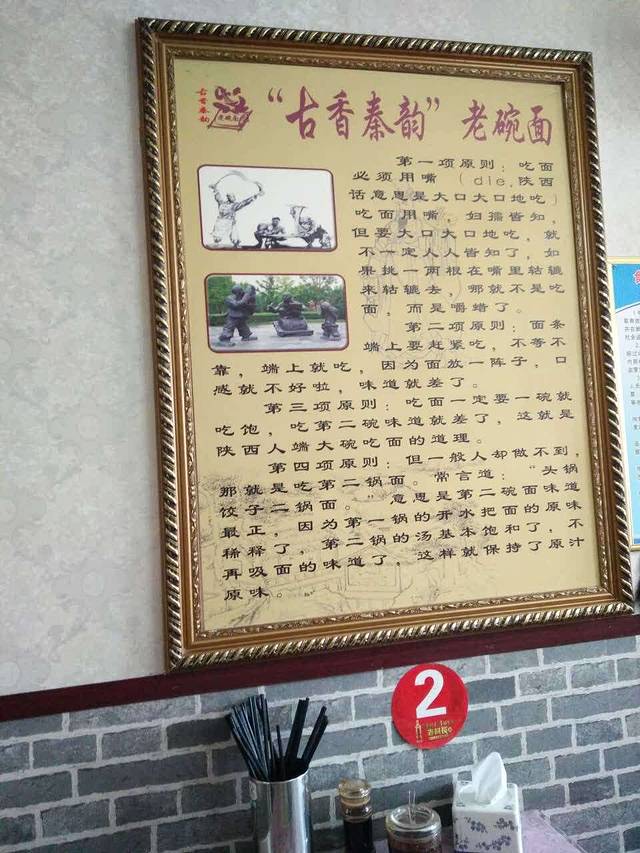 古香秦韵
“古香秦韵”老碗面
第一项原则：吃面
必须用嘴（die,陕西
话意思是大口大口地吃）
吃面用嘴，妇孺皆知，
但要大口大口地吃，就
不一定人人皆知了，如
果挑一两根在嘴里轱辘
来轱辘去，哪就不是吃
面，而是嚼蜡了。
第二项原则：面条
端上要赶紧吃，不等不
靠，端上就吃，因为面放一阵子，口
感就不好啦，味道就差了。
第三项原则：吃面一定要一碗就
吃饱，吃第二碗味道就差了，这就是
陕西人端大碗吃面的道理。
第四项原则：但一般人却做不到，
那就是吃第二锅面。常言道：“头锅
饺子二锅面。”意思是第二碗面味道
最正，因为第一锅的开水把面的原味
稀释了，第二锅的汤基本饱和了，不
再吸面的味道了，这样就保持了原汁
原味。
2